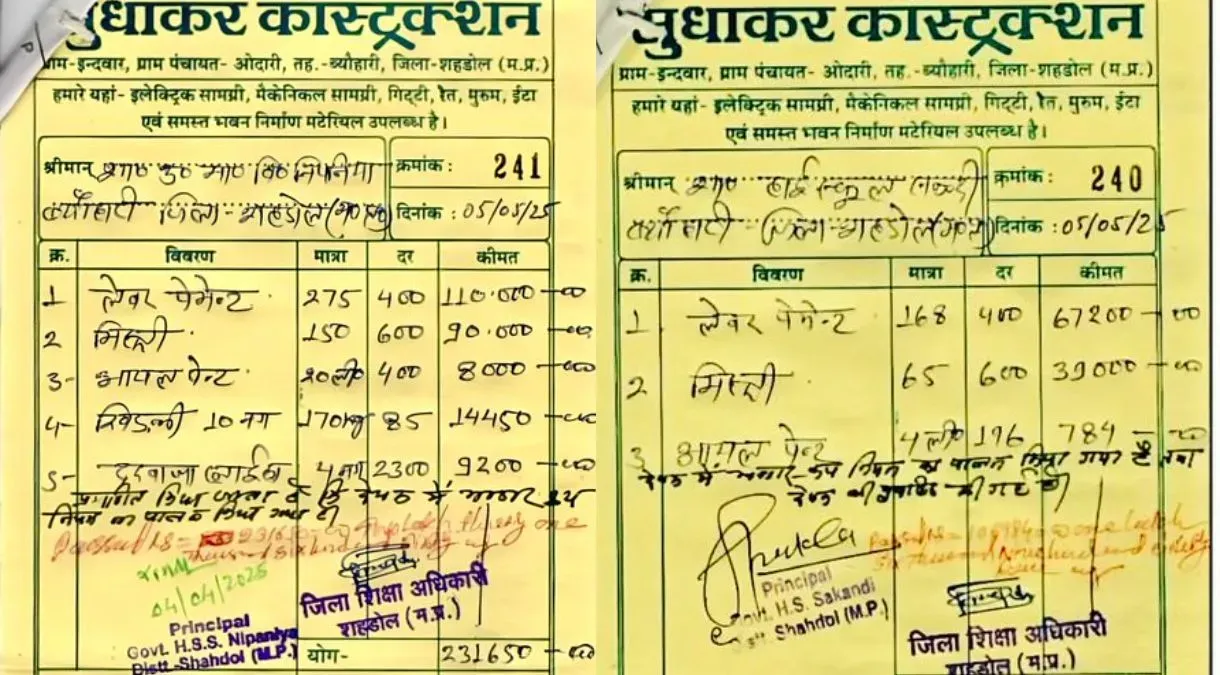 सुधाकर कास्ट्रक्शन
ग्राम-इन्दवार, ग्राम पंचायत- ओदारी, तह.-ब्यौहारी, जिला-शहडोल (म.प्र.)
हमारे यहां- इलेक्ट्रिक सामग्री, मैकेनिकल सामग्री, गिट्टी, रेत, मुरुम, ईटा
एवं समस्त भवन निर्माण मटेरियल उपलब्ध है।
श्रीमान् शा० उ० मा० वि० निपनिया
क्रमांक : 241
ब्यौहारी जिला- शहडोल (म०प्र०)
दिनांक : 05/05/25
क्र. विवरण मात्रा दर कीमत
1 लेवर पेमेन्ट 275 400 110.000-00
2 मिस्त्री 150 600 90.000-00
3- आयल पेन्ट 20ली० 400 8000-00
4- खिड़की 10 नग 170kg 85 14450-00
5- दरवाजा 4नग 2300 9200-00
प्रमाणित किया जाता है कि में भण्डार क्रय
नियम का पालन किया गया है।
04/04/2025
Principal
Govt. H.S.S. Nipaniya
Distt-Shahdol (M.P.)
जिला शिक्षा अधिकारी
शहडोल (म.प्र.)
योग- 231650-00
सुधाकर कास्ट्रक्शन
ग्राम-इन्दवार, ग्राम पंचायत- ओदारी, तह.-ब्यौहारी, जिला-शहडोल (म.प्र.)
हमारे यहां- इलेक्ट्रिक सामग्री, मैकेनिकल सामग्री, गिट्टी, रेत, मुरुम, ईटा
एवं समस्त भवन निर्माण मटेरियल उपलब्ध है।
श्रीमान् शा० हाई स्कूल सकन्दी
क्रमांक : 240
ब्यौहारी जिला-शहडोल (म०प्र०)
दिनांक : 05/05/25
क्र. विवरण मात्रा दर कीमत
1. लेवर पेमेन्ट 168 400 67200-00
2 मिस्त्री 65 600 39000-00
3 आयल पेन्ट 4ली० 196 784-00
में भण्डार क्रय नियम का पालन किया गया है तथा
की गई है।
Principal
Govt. H.S. Sakandi
Distt. Shahdol (M.P.)
जिला शिक्षा अधिकारी
शहडोल (म.प्र.)